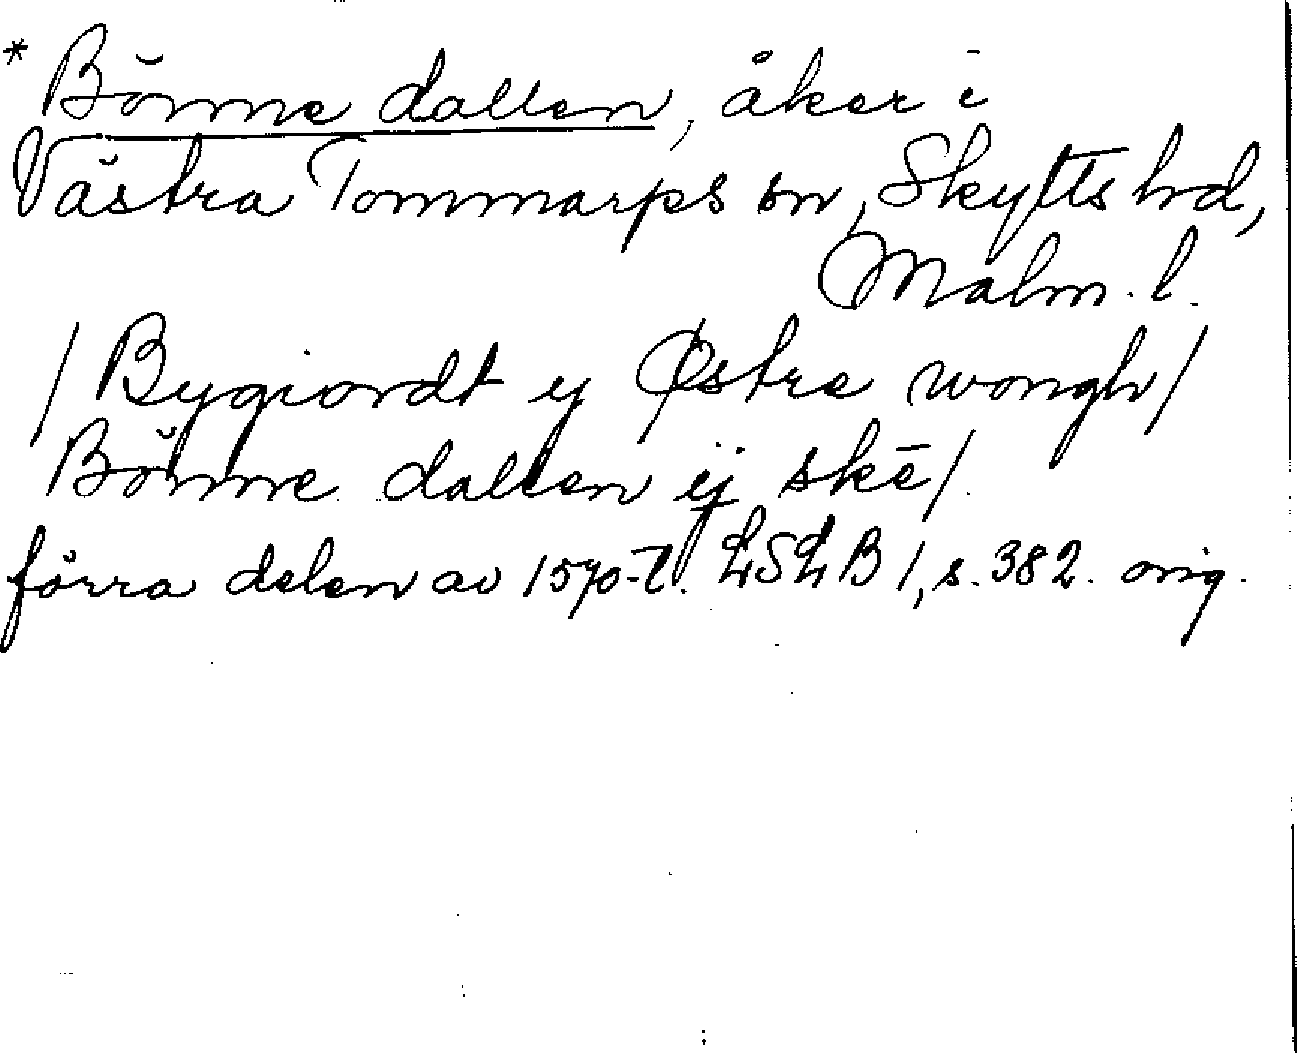 * Bŏnne dallen, åker i
Västra Tommarps sn, Skytts hd,
Malm. l.
/ Bygiordt y Østre wongh/
Bŏnne dallen ij skē/
förra delen av 1570-t. LSLB 1, s. 382. orig.